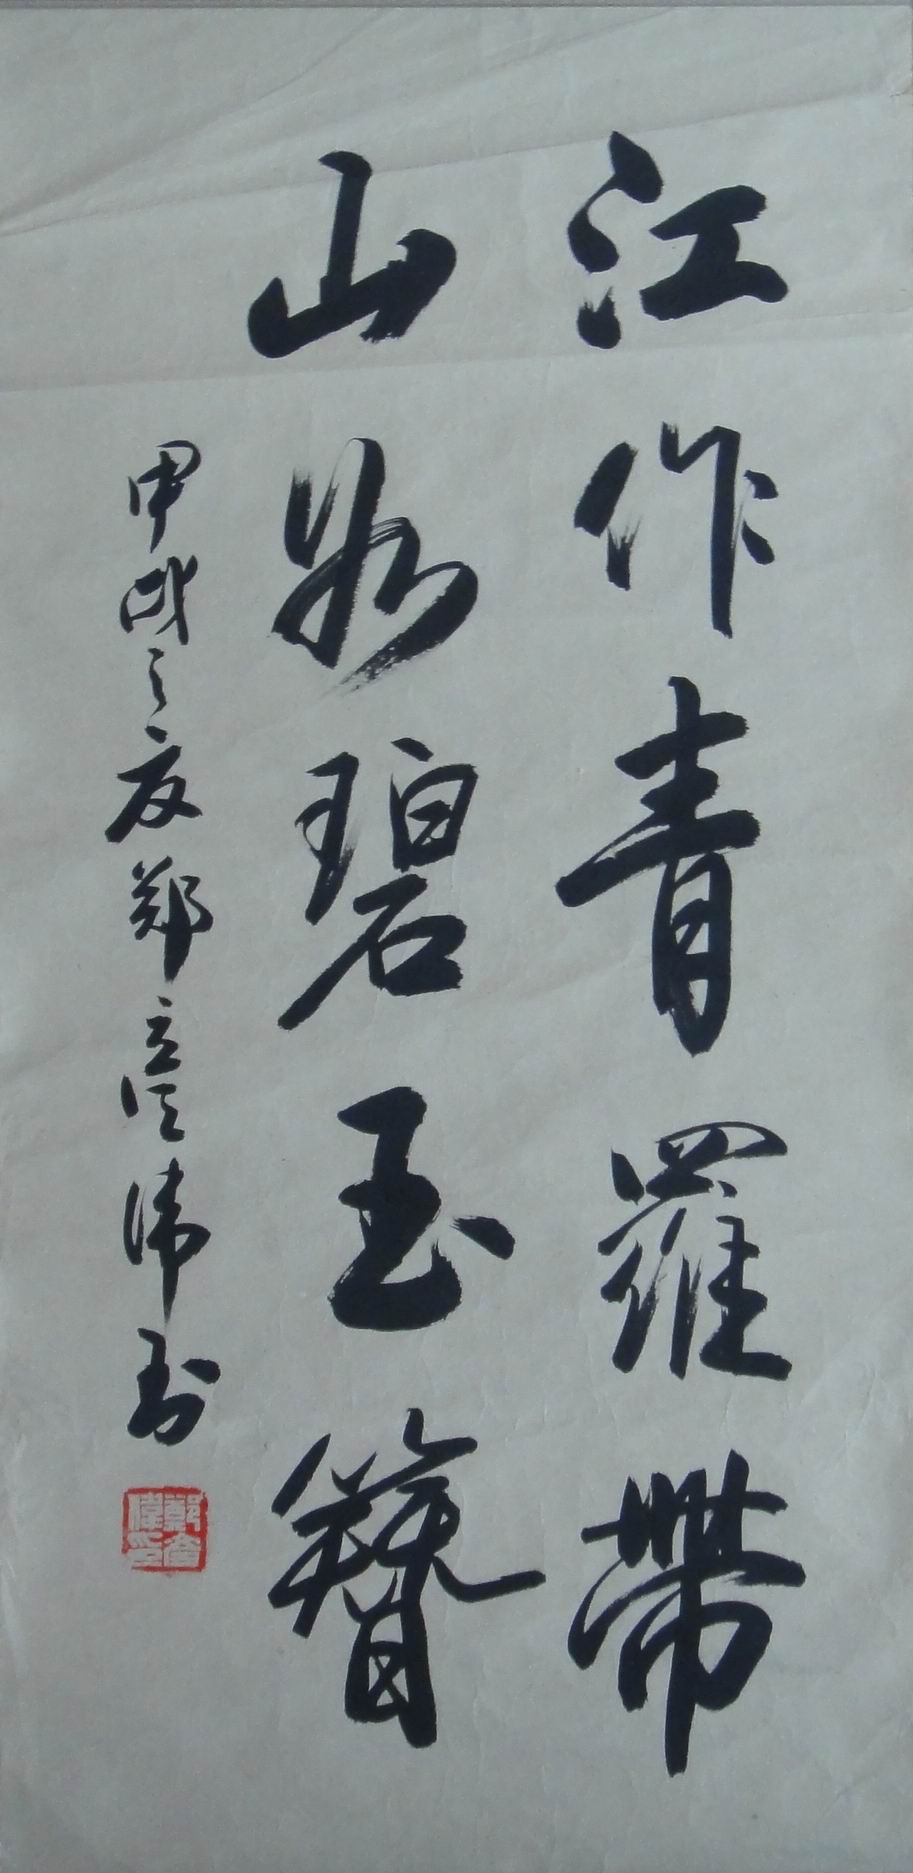 江作青羅帶
山如碧玉簪
甲戌之夏鄭偉書
鄭偉印